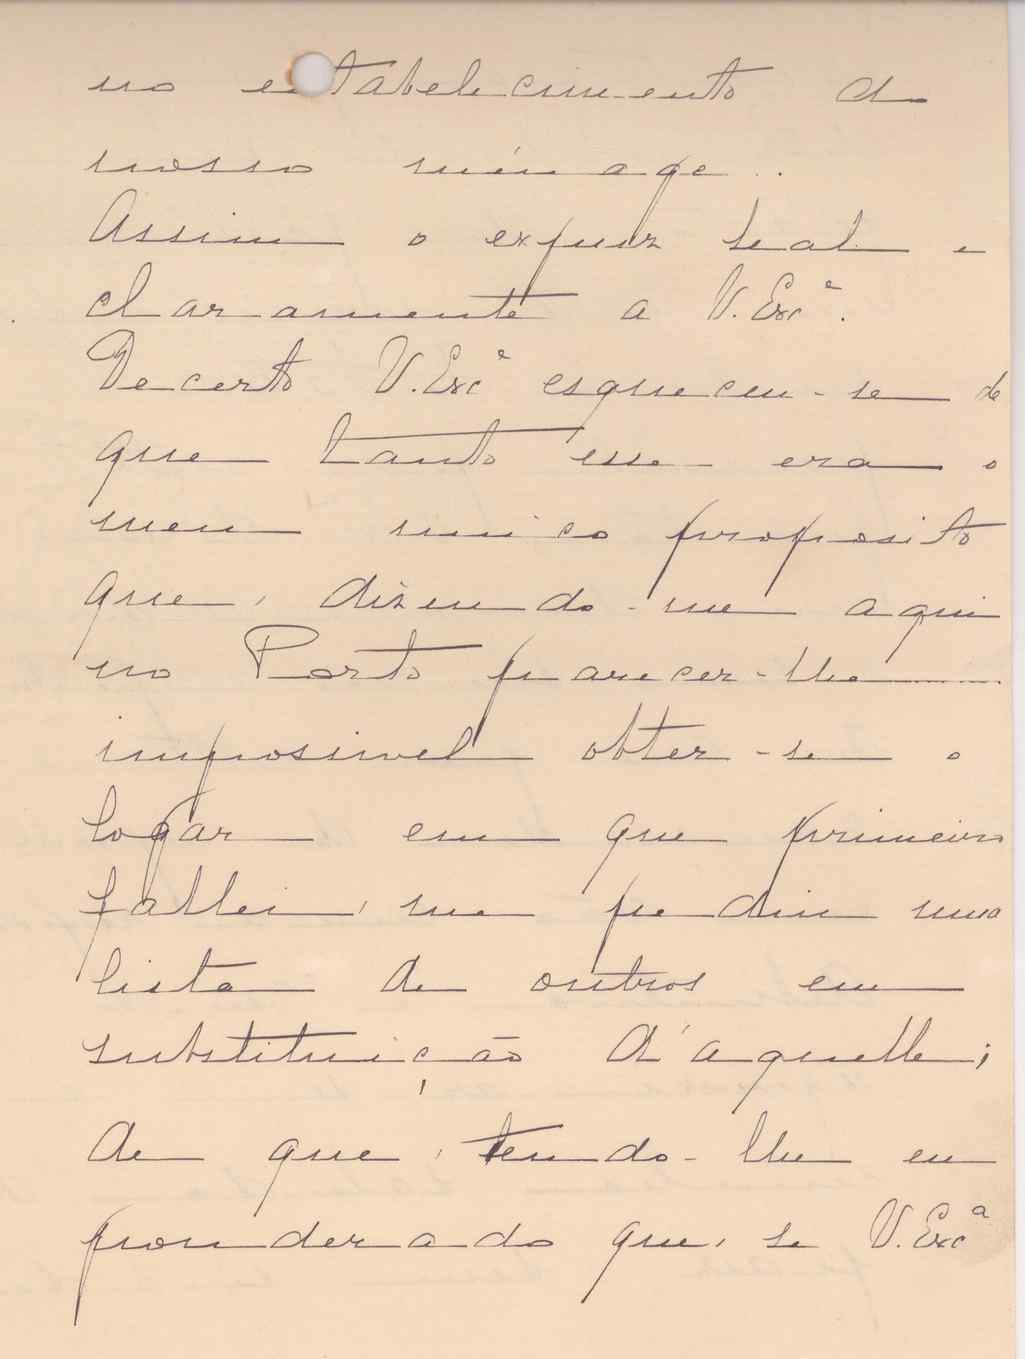 no estabelecimento do
nosso ménage..
Assim o expuz leal e
claramente a V. Exc.ª
Decerto V. Exc.ª esqueceu-se de
que tanto esse era o
meu unico proposito
que, dizendo-me aqui
no Porto parecer-lhe
impossivel obter-se o
logar em que primeiro
fallei, me pediu uma
lista de outros em
substituição d'aquelle;
de que, tendo-lhe eu
ponderado que, se V. Exc.ª